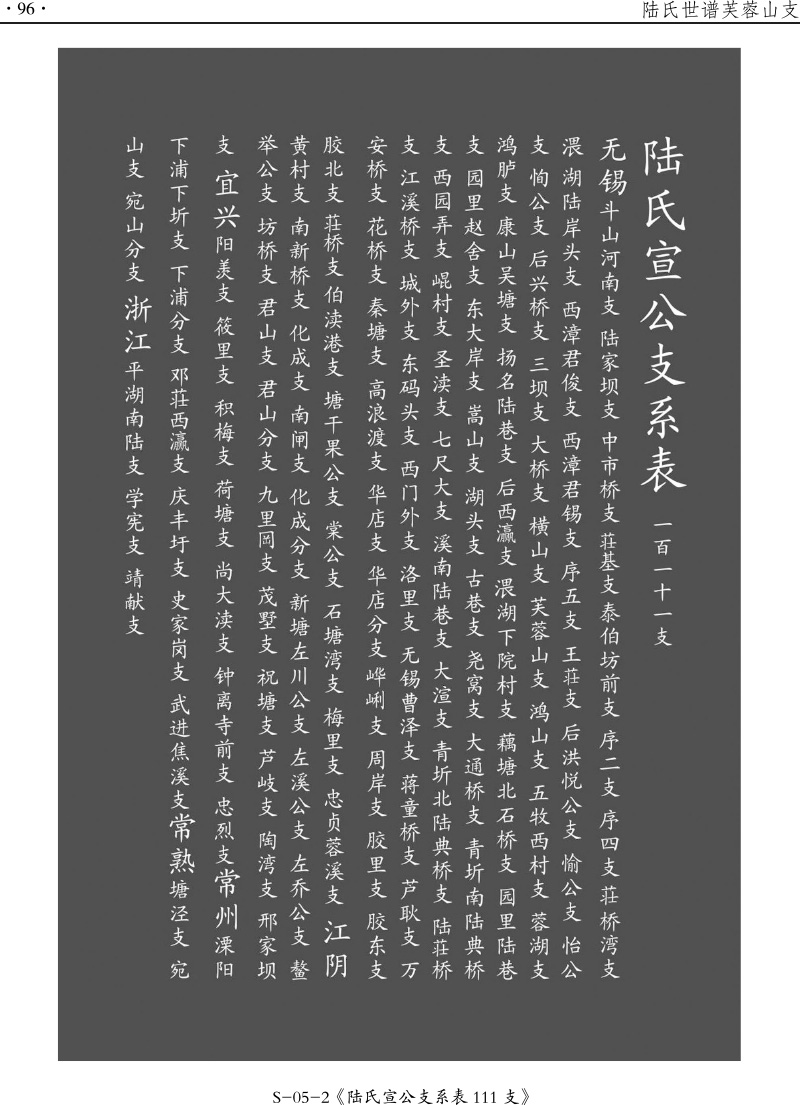 ·96·
陆氏世谱芙蓉山支
陆氏宣公支系表 一百一十一支
无锡斗山河南支 陆家坝支 中市桥支 莊基支 泰伯坊前支 序二支 序四支 莊桥湾支
渨湖陆岸头支 西漳君俊支 西漳君锡支 序五支 王莊支 后洪悦公支 愉公支 怡公
支 恂公支 后兴桥支 三坝支 大桥支 横山支 芙蓉山支 鸿山支 五牧西村支 蓉湖支
鸿胪支 康山吴塘支 扬名陆巷支 后西瀛支 渨湖下院村支 藕塘北石桥支 园里陆巷
支 园里赵舍支 东大岸支 嵩山支 湖头支 古巷支 尧窝支 大通桥支 青圻南陆典桥
支 西园弄支 崐村支 圣渎支 七尺大支 溪南陆巷支 大渲支 青圻北陆典桥支 陆莊桥
支 江溪桥支 城外支 东码头支 西门外支 洛里支 无锡曹泽支 蒋童桥支 芦耿支 万
安桥支 花桥支 秦塘支 高浪渡支 华店支 华店分支 崋峢支 周岸支 胶里支 胶东支
胶北支 莊桥支 伯渎港支 塘干果公支 棠公支 石塘湾支 梅里支 忠贞蓉溪支 江阴
黄村支 南新桥支 化成支 南闸支 化成分支 新塘左川公支 左溪公支 左乔公支 鳌
举公支 坊桥支 君山支 君山分支 九里岡支 茂墅支 祝塘支 芦岐支 陶湾支 邢家坝
支 宜兴阳羡支 筱里支 积梅支 荷塘支 尚大渎支 钟离寺前支 忠烈支 常州溧阳
下浦下圻支 下浦分支 邓莊西瀛支 庆丰圩支 史家岗支 武进焦溪支 常熟塘泾支 宛
山支 宛山分支 浙江平湖南陆支 学宪支 靖献支
S-05-2《陆氏宣公支系表111支》